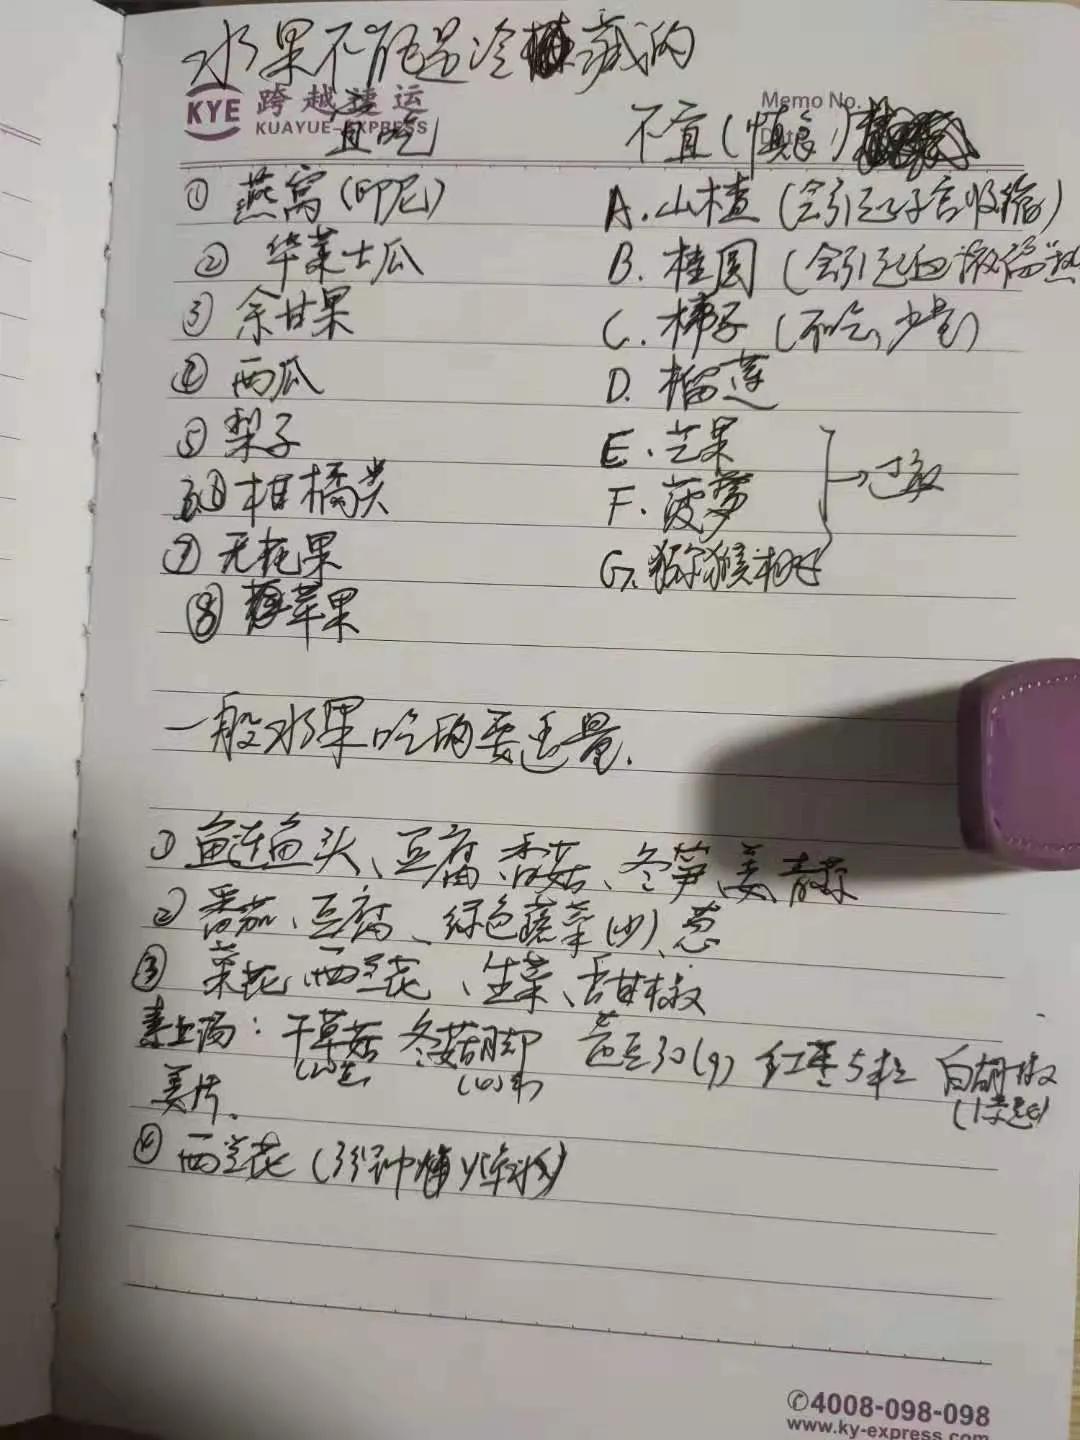 水果不能是冷藏的
KYE 跨越速运
KUAYUE-EXPRESS
Memo No.
宜吃 不宜(慎食)
① 燕窝(印尼) A.山楂(会引起子宫收缩)
② 华莱士瓜 B.桂圆(会引起血液
③ 余甘果 C.柿子(不吃,少量)
④ 西瓜 D.榴莲
⑤ 梨子 E.芒果
柑橘类 F.菠萝 →过敏
⑦ 无花果 G.猕猴桃
⑧ 苹果
一般水果吃的要适量.
① 鲢鱼头、豆腐、香菇、冬笋、姜、青蒜
② 番茄、豆腐、绿色蔬菜(少)、葱
③ 菜花、西兰花、生菜、甜椒
素上汤：干草菇 冬菇脚 30(g) 红枣5粒 白胡椒
姜片.
④ 西兰花(3分钟
✆4008-098-098
www.ky-express.com